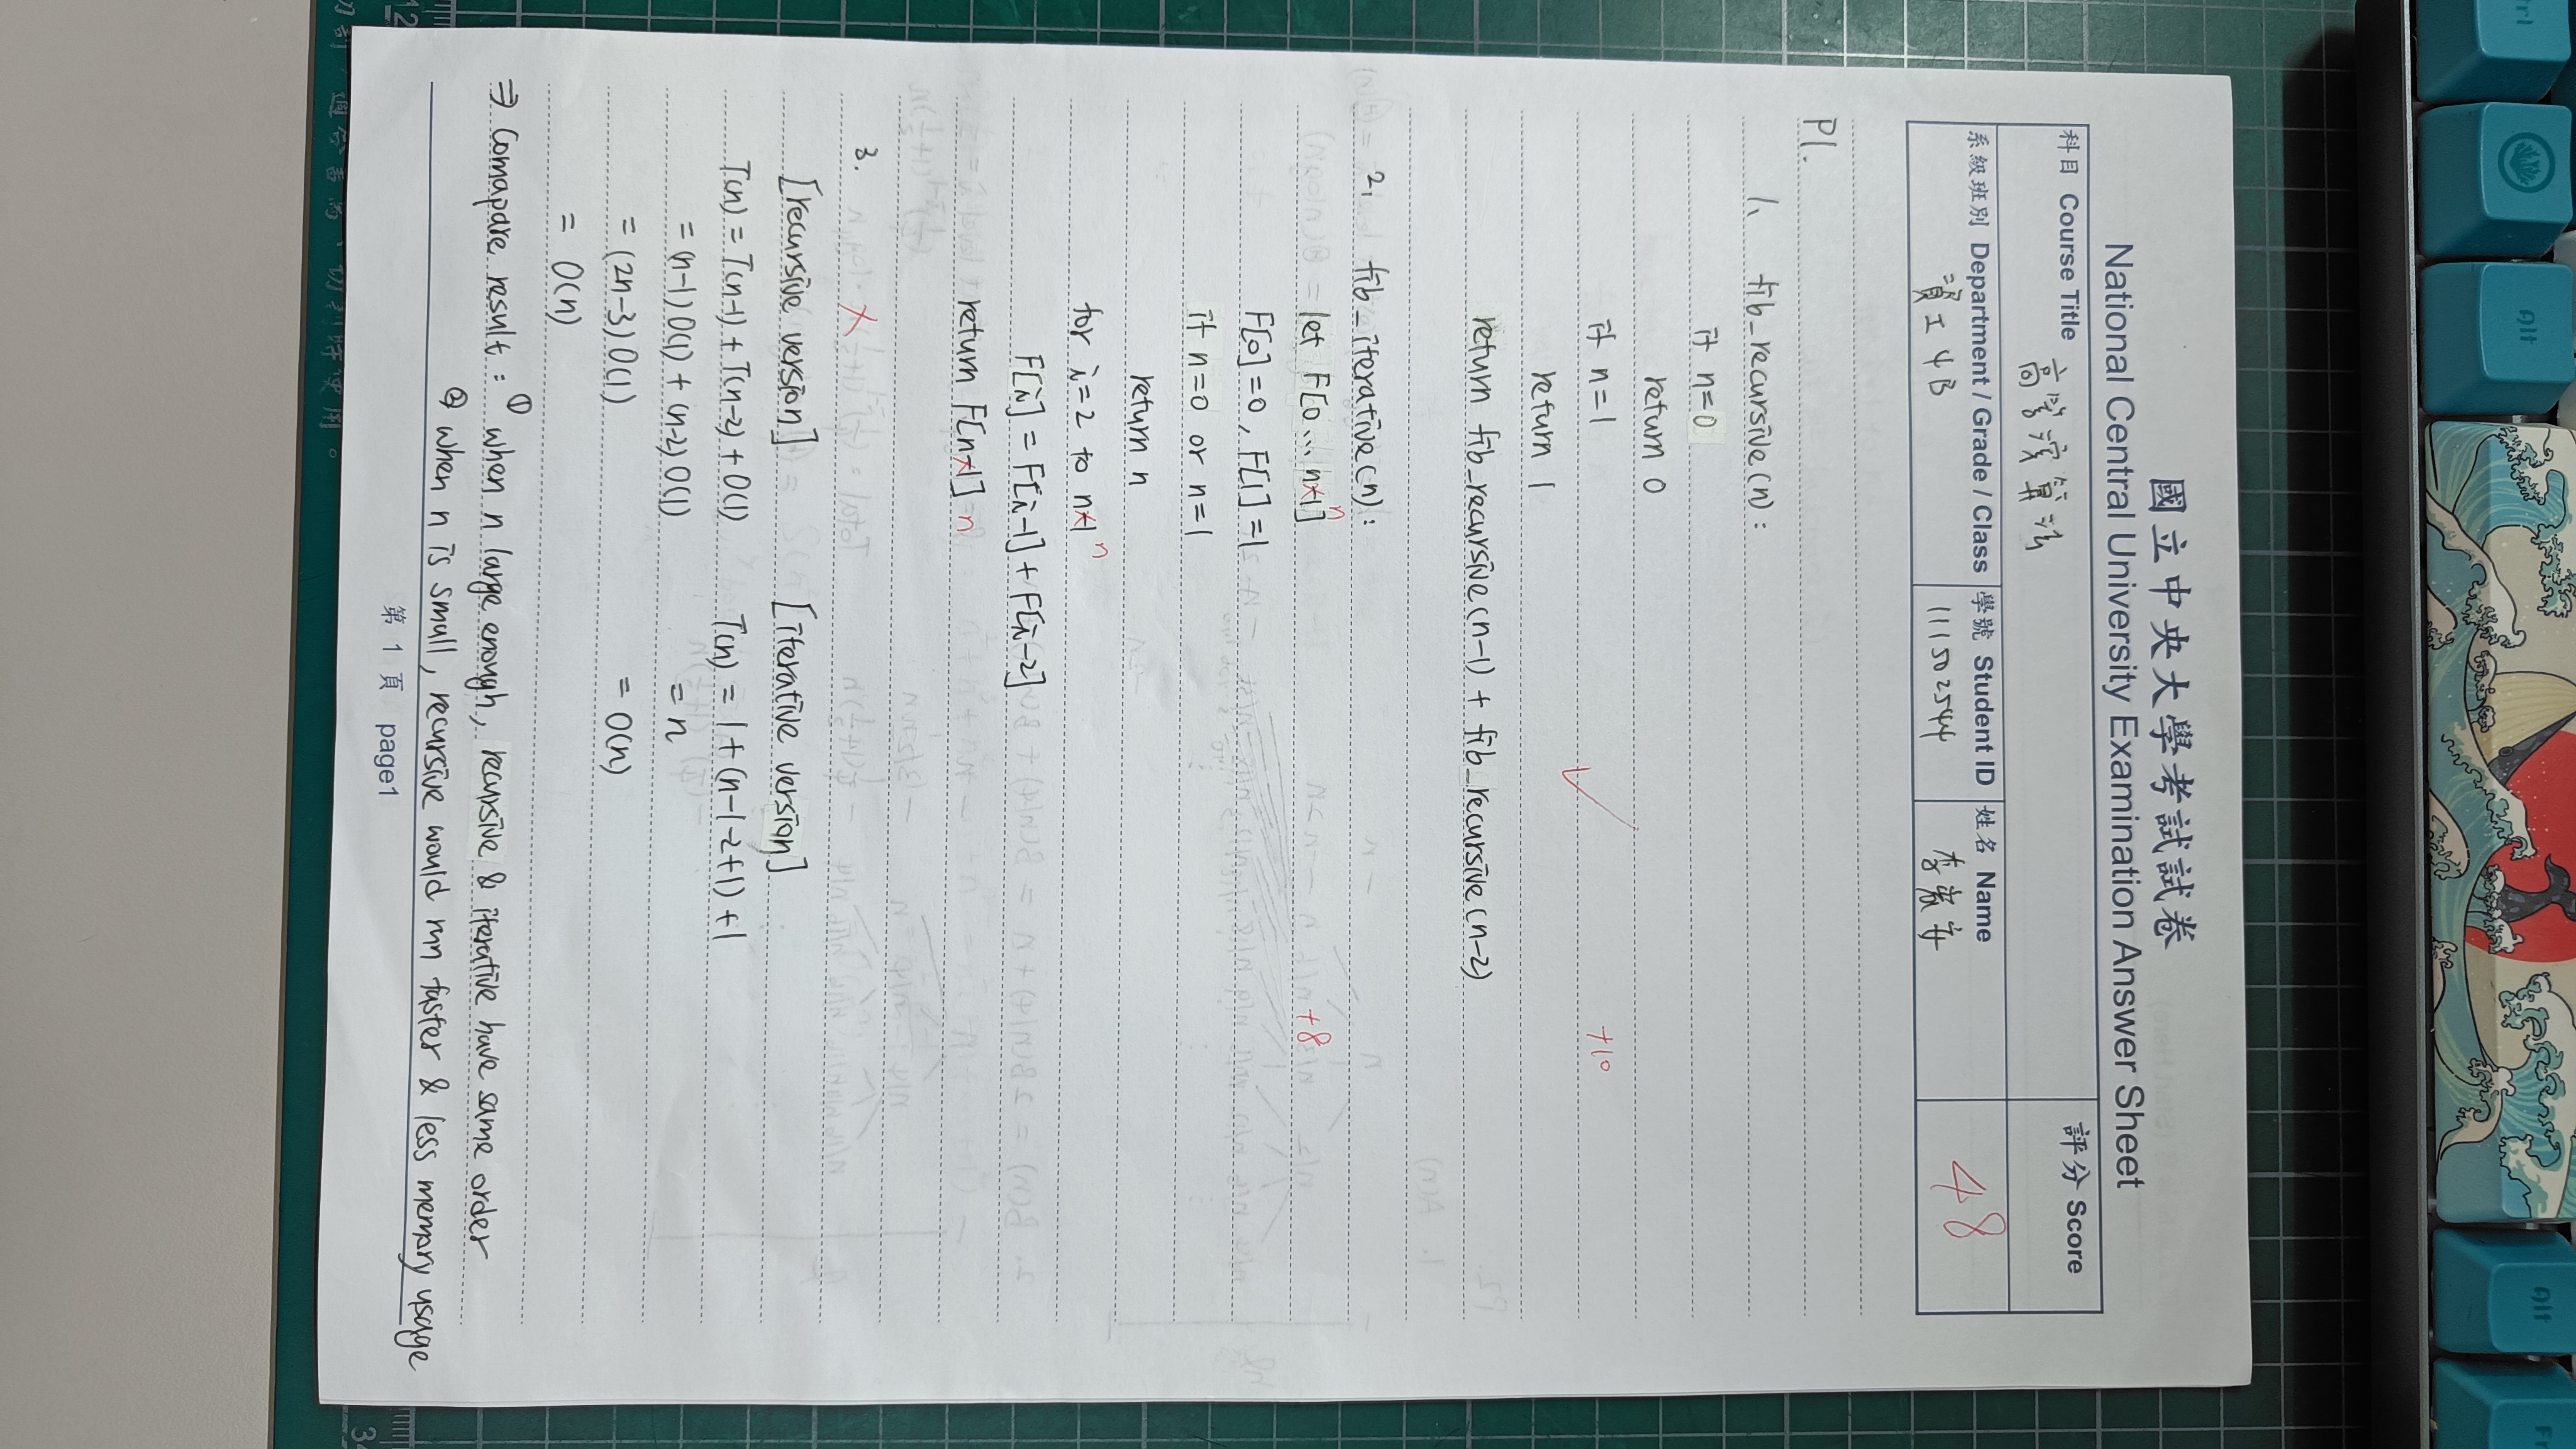 Alt
Alt
國立中央大學考試試卷
National Central University Examination Answer Sheet
科目 Course Title 高等演算法
評分 Score
系級班別 Department / Grade / Class 學號 Student ID 姓名 Name
資工4B 111502544 李宸安
48
P1.
1. fib_recursive(n):
if n=0
return 0
if n=1
+10
return 1
return fib_recursive(n-1) + fib_recursive(n-2)
2. fib_iterative(n):
let F[0...n+1] n
+8
F[0]=0, F[1]=1
if n=0 or n=1
return n
for i=2 to n+1 n
F[i] = F[i-1] + F[i-2]
return F[n+1] n
3.
[recursive version] [iterative version]
T(n) = T(n-1) + T(n-2) + O(1) T(n) = 1+(n-1-2+1)+1
= (n-1)O(1) + (n-2)O(1) = n
= (2n-3)O(1) = O(n)
= O(n)
⇒ Comapare result: ① when n large enough, recursive & iterative have same order
② when n is small, recursive would run faster & less memory usage
第 1 頁 page1